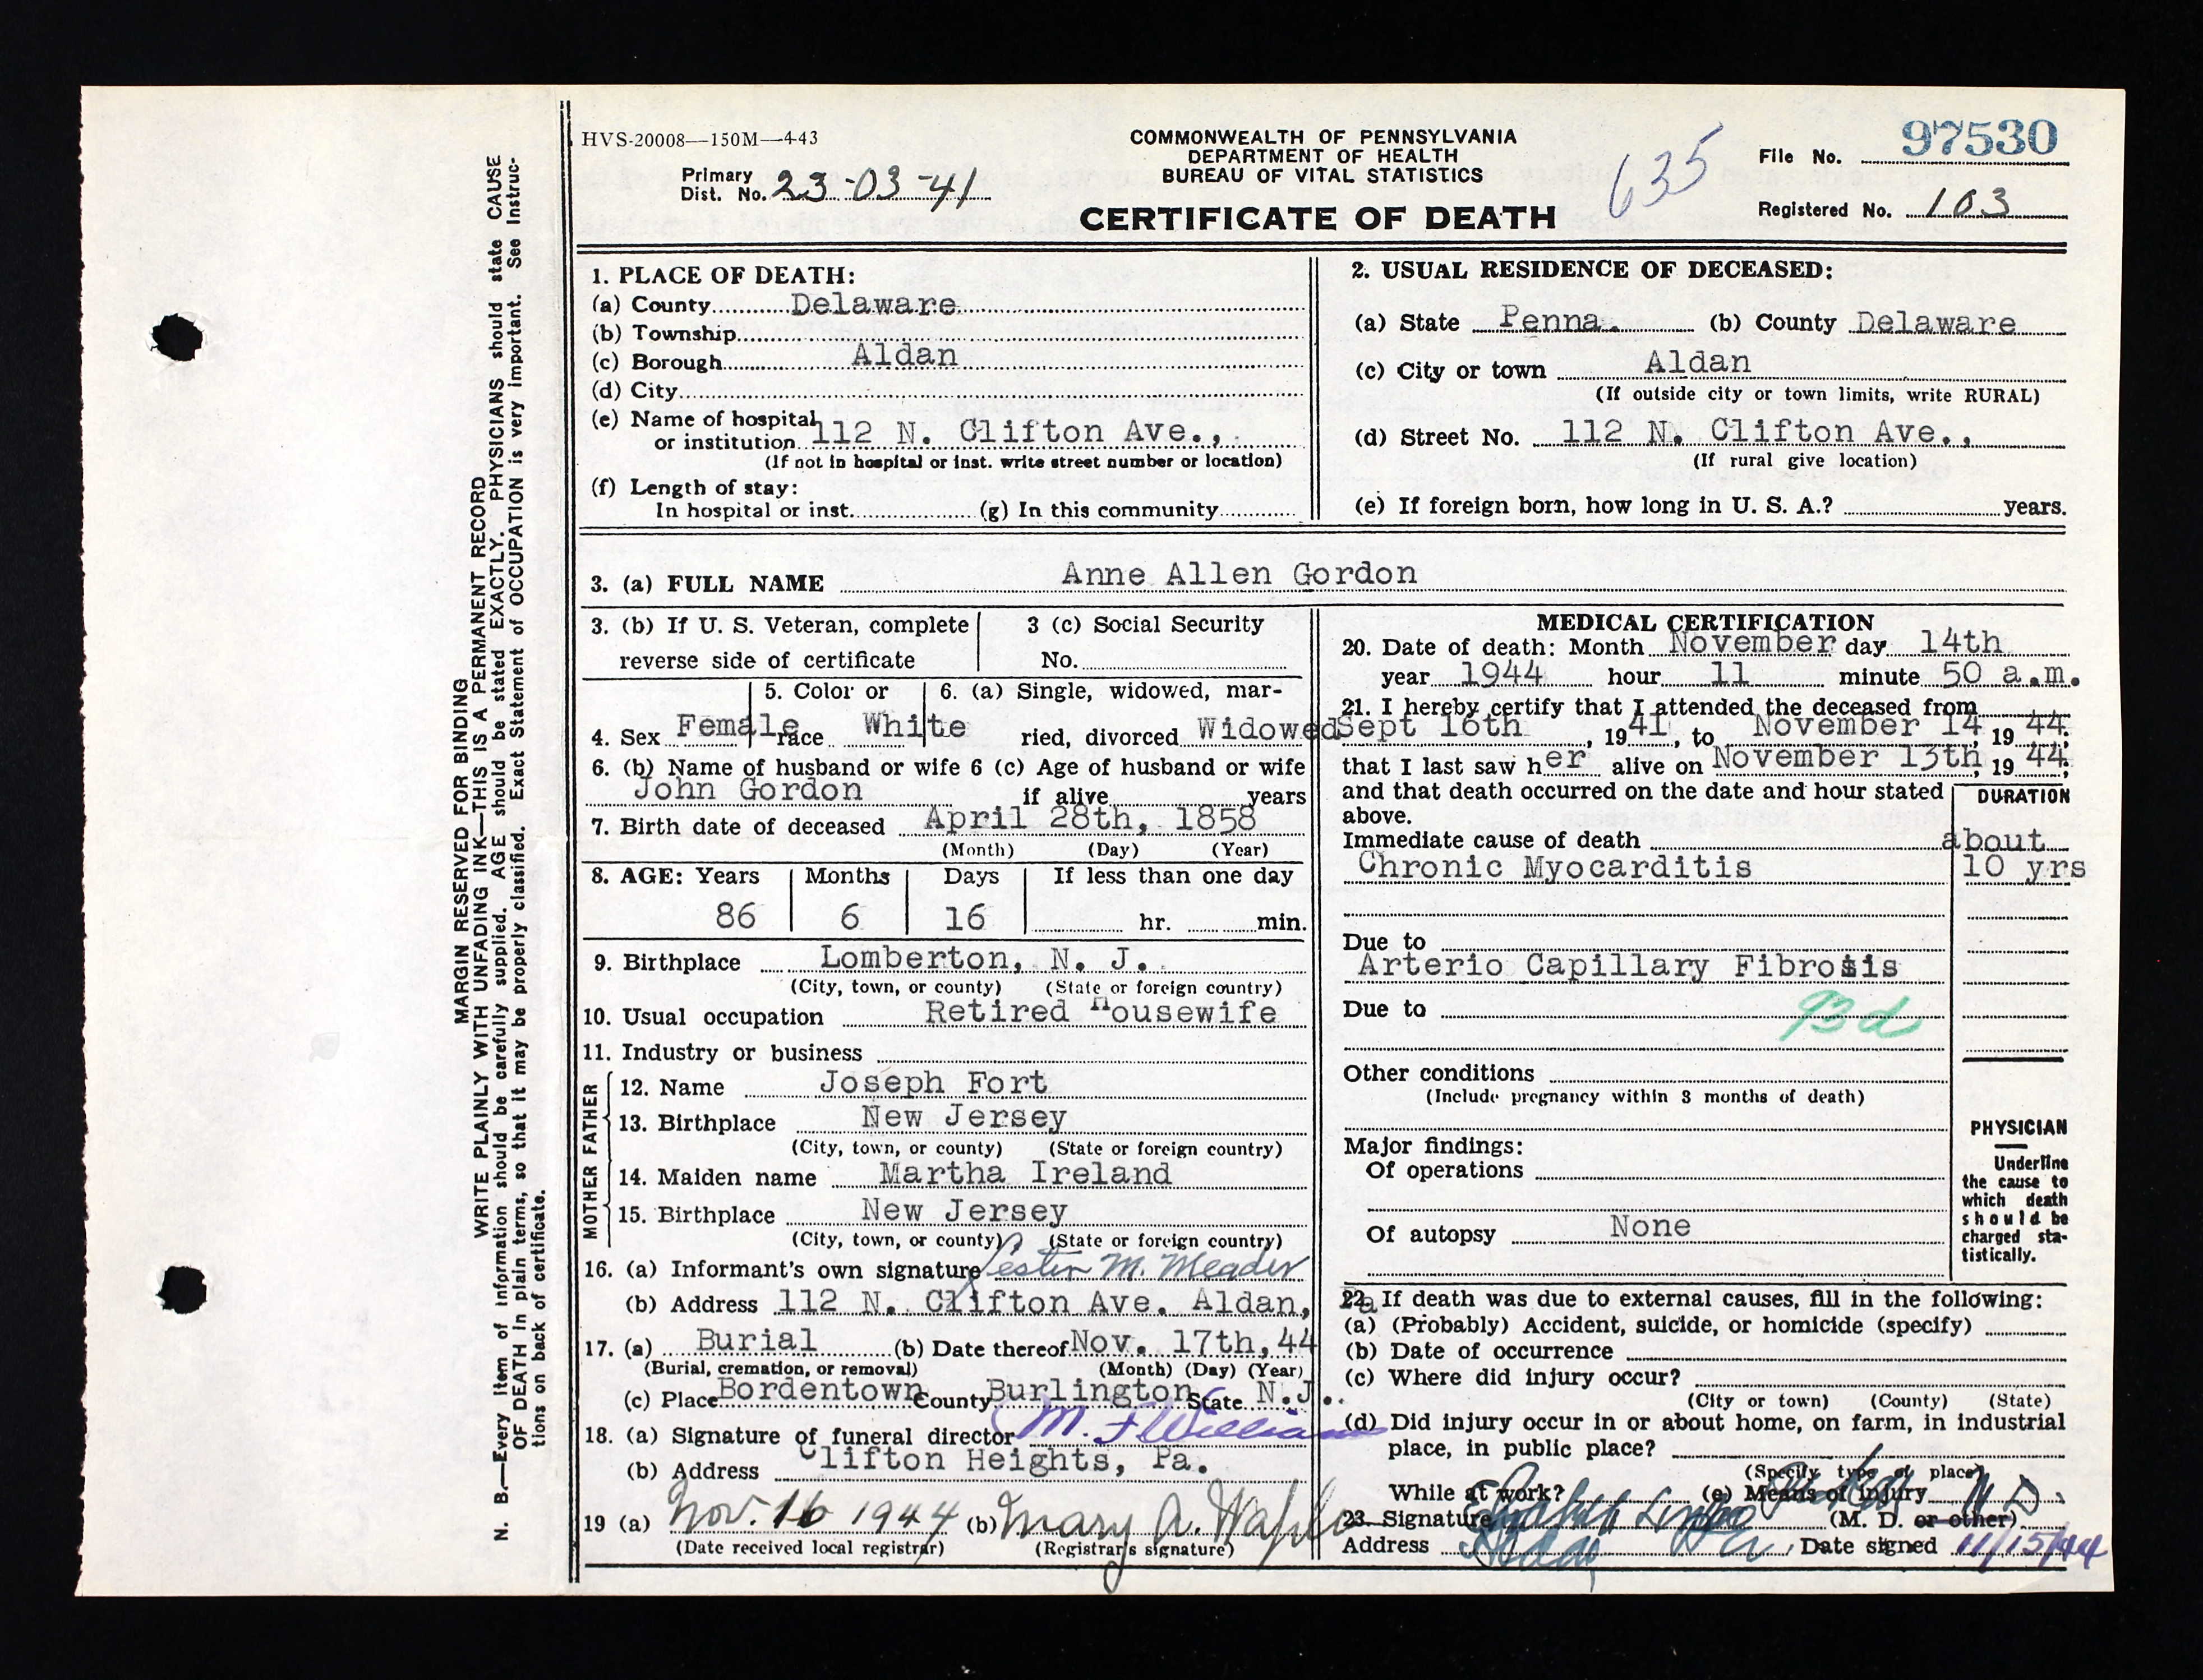 HVS-20008—150M—4-43
Primary
Dist. No. 23-03-41
COMMONWEALTH OF PENNSYLVANIA
DEPARTMENT OF HEALTH
BUREAU OF VITAL STATISTICS
CERTIFICATE OF DEATH
635
File No. 97530
Registered No. 103
MARGIN RESERVED FOR BINDING
WRITE PLAINLY WITH UNFADING INK—THIS IS A PERMANENT RECORD
N. B.—Every item of information should be carefully supplied. AGE should be stated EXACTLY. PHYSICIANS should state CAUSE
OF DEATH in plain terms, so that it may be properly classified. Exact Statement of OCCUPATION is very important. See Instruc-
tions on back of certificate.
1. PLACE OF DEATH:
(a) County Delaware
(b) Township
(c) Borough Aldan
(d) City
(e) Name of hospital
or institution 112 N. Clifton Ave.,
(If not in hospital or inst. write street number or location)
(f) Length of stay:
In hospital or inst. (g) In this community
2. USUAL RESIDENCE OF DECEASED:
(a) State Penna. (b) County Delaware
(c) City or town Aldan
(If outside city or town limits, write RURAL)
(d) Street No. 112 N. Clifton Ave.,
(If rural give location)
(e) If foreign born, how long in U. S. A.? years.
3. (a) FULL NAME Anne Allen Gordon
3. (b) If U. S. Veteran, complete
reverse side of certificate
3 (c) Social Security
No.
4. Sex Female
5. Color or
race White
6. (a) Single, widowed, mar-
ried, divorced Widowed
6. (b) Name of husband or wife
John Gordon
6 (c) Age of husband or wife
if alive years
7. Birth date of deceased April 28th, 1858
(Month) (Day) (Year)
8. AGE: Years Months Days If less than one day
86 6 16 hr. min.
9. Birthplace Lomberton, N. J.
(City, town, or county) (State or foreign country)
10. Usual occupation Retired Housewife
11. Industry or business
FATHER
12. Name Joseph Fort
13. Birthplace New Jersey
(City, town, or county) (State or foreign country)
MOTHER
14. Maiden name Martha Ireland
15. Birthplace New Jersey
(City, town, or county) (State or foreign country)
16. (a) Informant's own signature Lester M. Meader
(b) Address 112 N. Clifton Ave. Aldan, Pa
17. (a) Burial (b) Date thereof Nov. 17th, 44
(Burial, cremation, or removal) (Month) (Day) (Year)
(c) Place Bordentown County Burlington State N.J..
18. (a) Signature of funeral director M. F Williams
(b) Address Clifton Heights, Pa.
19 (a) Nov. 16 1944 (b) Mary A.
(Date received local registrar) (Registrar's signature)
MEDICAL CERTIFICATION
20. Date of death: Month November day 14th
year 1944 hour 11 minute 50 a.m.
21. I hereby certify that I attended the deceased from
Sept 16th, 1941, to November 14, 1944;
that I last saw her alive on November 13th, 1944;
and that death occurred on the date and hour stated
above.
DURATION
Immediate cause of death about
Chronic Myocarditis 10 yrs
Due to
Arterio Capillary Fibrosis
Due to 93d
Other conditions
(Include pregnancy within 3 months of death)
Major findings:
Of operations
Of autopsy None
PHYSICIAN
Underline
the cause to
which death
should be
charged sta-
tistically.
22. If death was due to external causes, fill in the following:
(a) (Probably) Accident, suicide, or homicide (specify)
(b) Date of occurrence
(c) Where did injury occur?
(City or town) (County) (State)
(d) Did injury occur in or about home, on farm, in industrial
place, in public place?
(Specify type of place)
While at work? (e) Means of injury M D.
23. Signature Elizabeth (M. D. or other)
Address Aldan Pa, Date signed 11/15/44